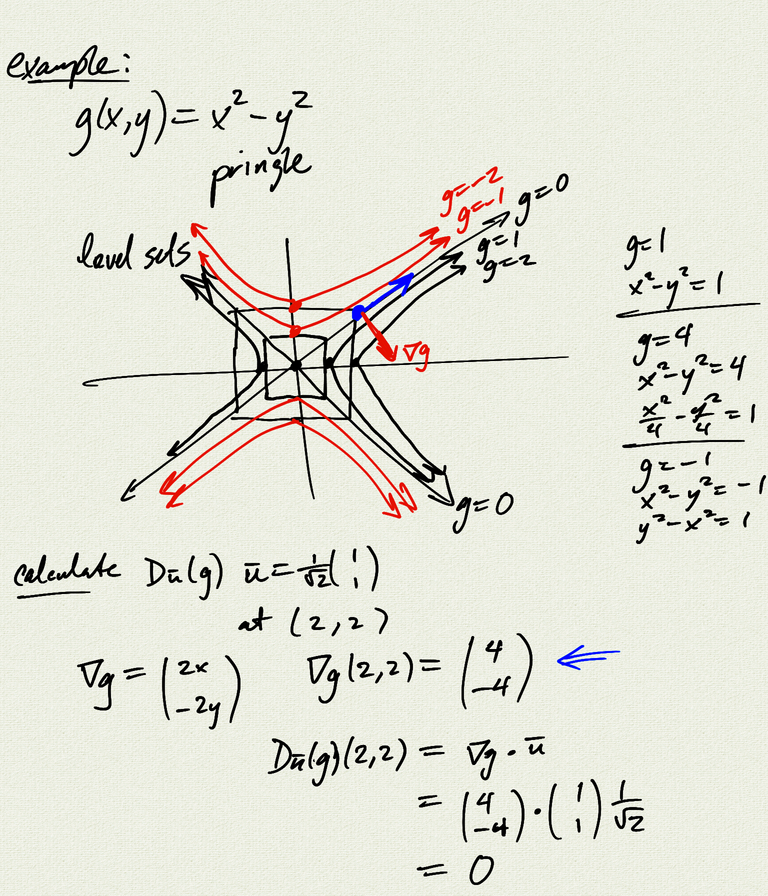 example:
g(x,y) = x² - y²
pringle
level sets
g=-2
g=-1
g=0
g=1
g=2
∇g
g=0
g=1
x²-y²=1
g=4
x²-y²=4
x²/4 - y²/4 = 1
g=-1
x²-y²=-1
y²-x²=1
calculate Dū(g) ū = 1/√2 (1 1)
at (2,2)
∇g = (2x -2y) ∇g(2,2) = (4 -4) ⇐
Dū(g)(2,2) = ∇g · ū
= (4 -4) · (1 1) 1/√2
= 0